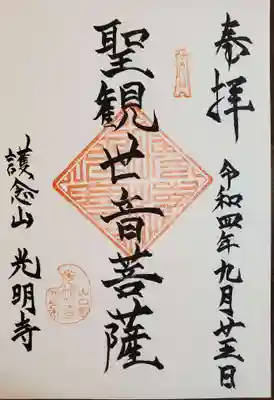 奉拝
令和四年九月廿五日
聖観世音菩薩
護念山 光明寺